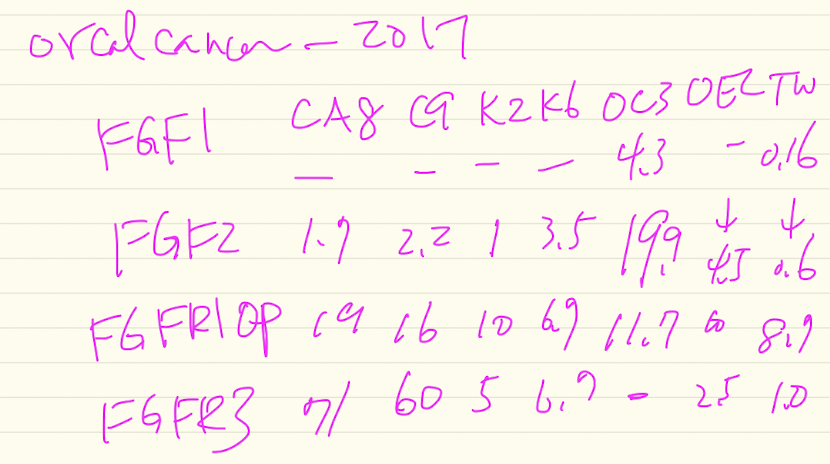 orcal cancer - 2017
CA8 C9 K2 K6 OC3 OE2 TW
FGF1 - - - - 4.3 - 0.16
FGF2 1.9 2.2 1 3.5 19.9 ↓ ↓
4.5 0.6
FGFR1OP 19 16 10 6.9 11.7 8.9
FGFR3 71 60 5 6.9 - 25 1.0